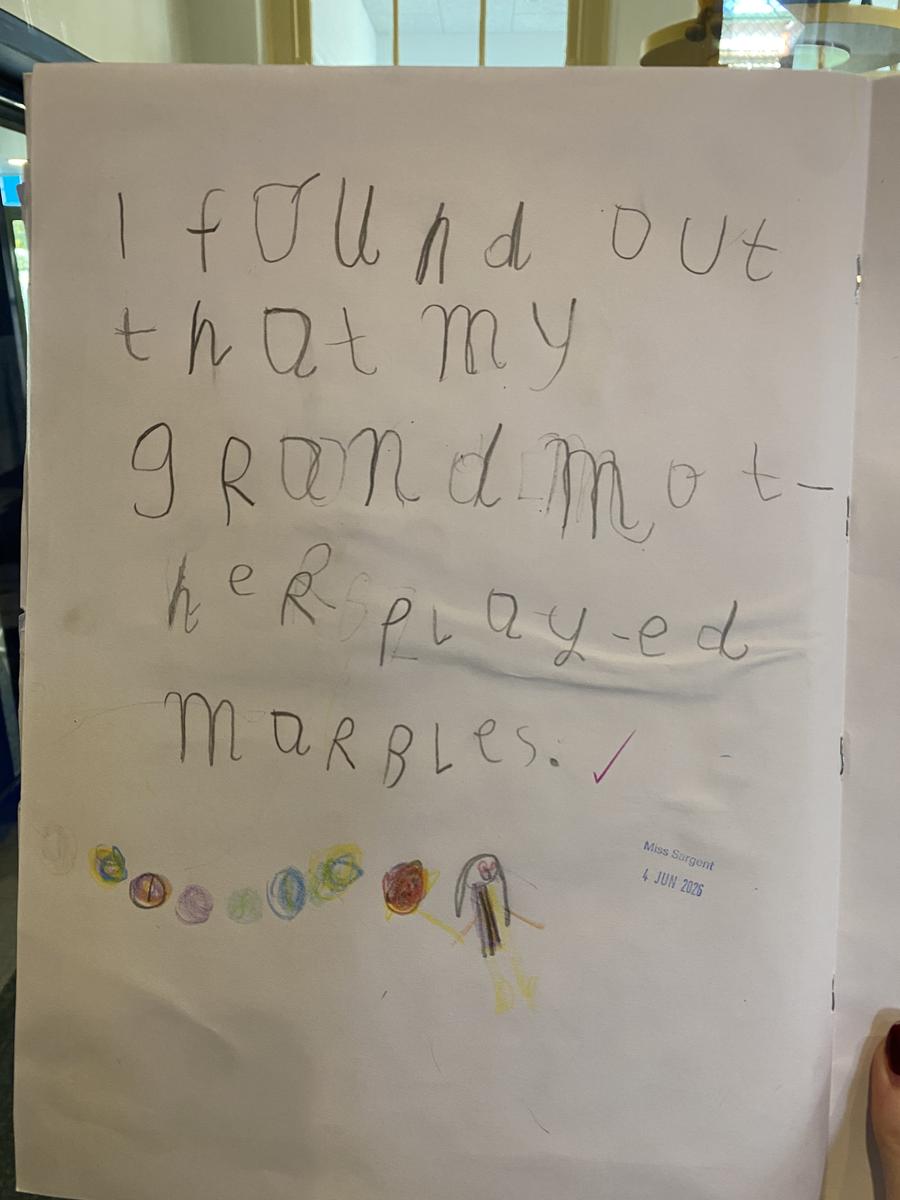 I found out
that my
grandmot-
her played
marbles.
Miss Sargent
4 JUN 2026